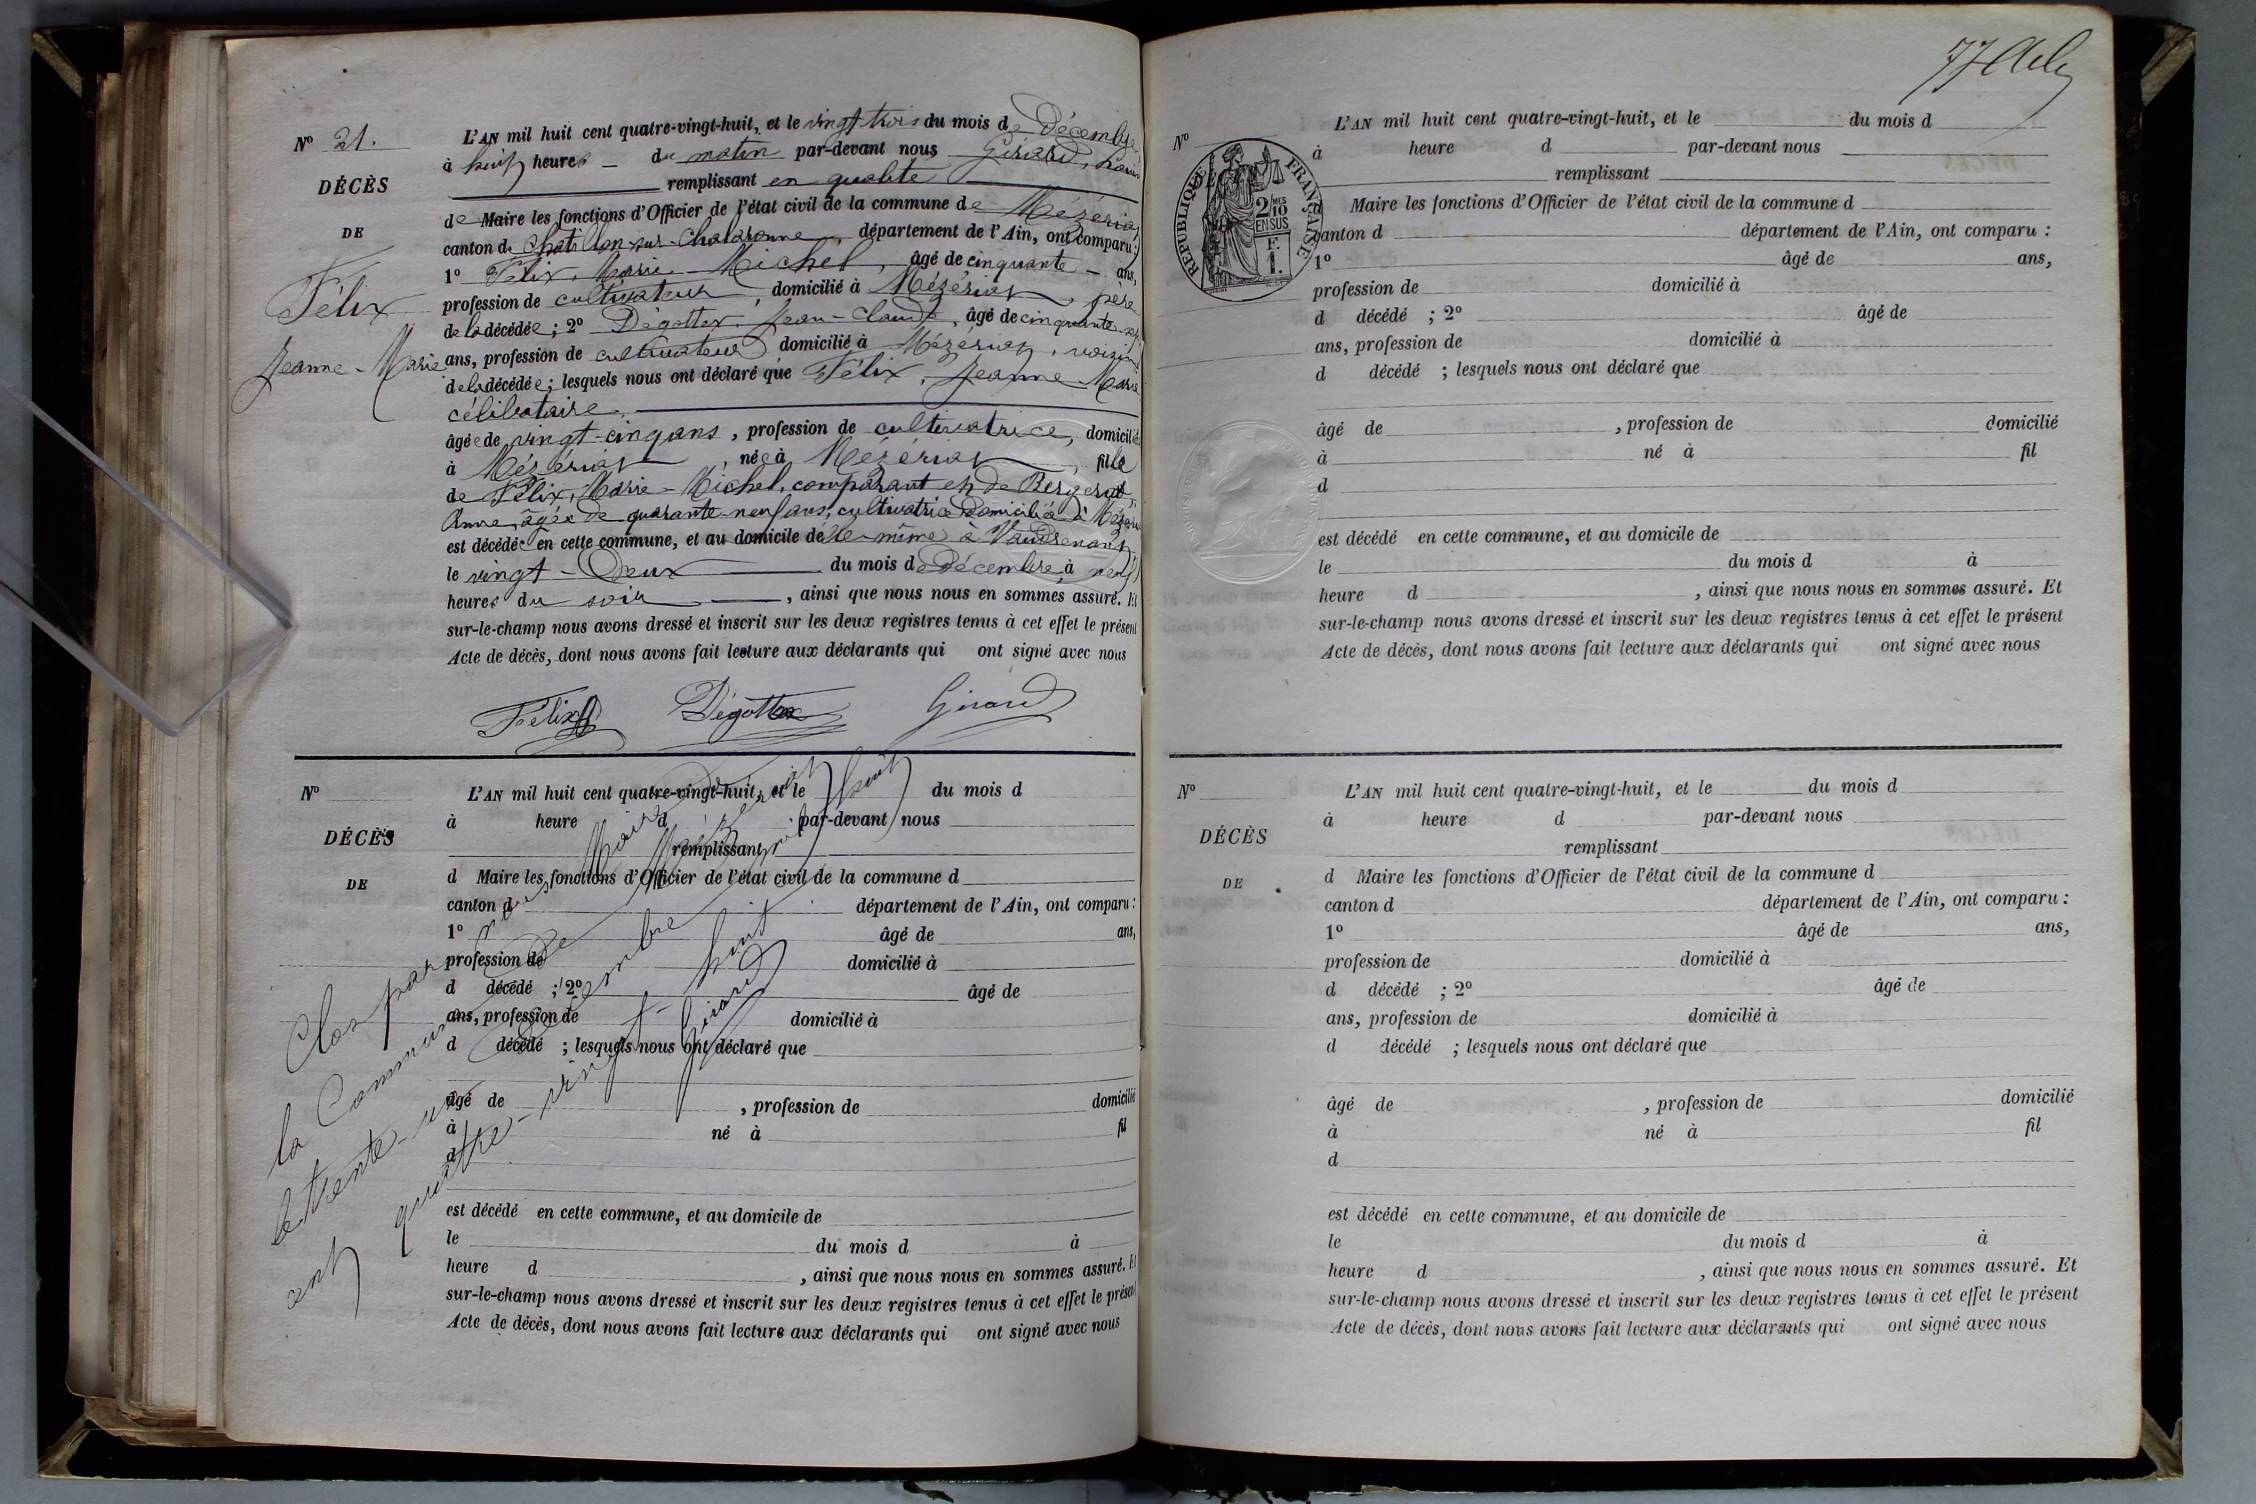 N° 21.
DÉCÈS
DE
Félix
Jeanne-Marie
L'AN mil huit cent quatre-vingt-huit, et le vingt trois du mois de Décembre
à huit heures - du matin par-devant nous Girard,
remplissant en qualité
de Maire les fonctions d'Officier de l'état civil de la commune de Mézériat
canton de Chatillon-sur-Chalaronne, département de l'Ain, ont comparu :
1° Félix, Marie-Michel, âgé de cinquante - ans,
profession de cultivateur, domicilié à Mézériat, père
de la décédée ; 2° Dégottex, Jean-Claude, âgé de cinquante-sept
ans, profession de cultivateur domicilié à Mézériat, voisin
de la décédée ; lesquels nous ont déclaré que Félix, Jeanne-Marie
célibataire,
âgée de vingt-cinq ans, profession de cultivatrice, domicilié
à Mézériat, née à Mézériat, fille
de Félix, Marie-Michel, comparant et de Bergerat,
Anne, âgée de quarante-neuf ans, cultivatrice domiciliée à Mézériat
est décédée en cette commune, et au domicile d'elle-même à
le vingt-deux du mois de Décembre, à neuf
heures du soir, ainsi que nous nous en sommes assuré. Et
sur-le-champ nous avons dressé et inscrit sur les deux registres tenus à cet effet le présent
Acte de décès, dont nous avons fait lecture aux déclarants qui ont signé avec nous
Félix Dégottex Girard
N°
DÉCÈS
DE
L'AN mil huit cent quatre-vingt-huit, et le du mois d
à heure d par-devant nous
remplissant
d Maire les fonctions d'Officier de l'état civil de la commune d
canton d département de l'Ain, ont comparu :
1° âgé de ans,
profession de domicilié à
d décédé ; 2° âgé de
ans, profession de domicilié à
d décédé ; lesquels nous ont déclaré que
âgé de , profession de domicilié
à né à fil
d
est décédé en cette commune, et au domicile de
le du mois d à
heure d , ainsi que nous nous en sommes assuré. Et
sur-le-champ nous avons dressé et inscrit sur les deux registres tenus à cet effet le présent
Acte de décès, dont nous avons fait lecture aux déclarants qui ont signé avec nous
Clos par nous Maire de
la Commune de Mézériat
le trente-un décembre mil huit
cent quatre-vingt-huit
Girard
77
N°
RÉPUBLIQUE FRANÇAISE
2/10MES
EN SUS
1F.
L'AN mil huit cent quatre-vingt-huit, et le du mois d
à heure d par-devant nous
remplissant
d Maire les fonctions d'Officier de l'état civil de la commune d
canton d département de l'Ain, ont comparu :
1° âgé de ans,
profession de domicilié à
d décédé ; 2° âgé de
ans, profession de domicilié à
d décédé ; lesquels nous ont déclaré que
âgé de , profession de domicilié
à né à fil
d
est décédé en cette commune, et au domicile de
le du mois d à
heure d , ainsi que nous nous en sommes assuré. Et
sur-le-champ nous avons dressé et inscrit sur les deux registres tenus à cet effet le présent
Acte de décès, dont nous avons fait lecture aux déclarants qui ont signé avec nous
N°
DÉCÈS
DE
L'AN mil huit cent quatre-vingt-huit, et le du mois d
à heure d par-devant nous
remplissant
d Maire les fonctions d'Officier de l'état civil de la commune d
canton d département de l'Ain, ont comparu :
1° âgé de ans,
profession de domicilié à
d décédé ; 2° âgé de
ans, profession de domicilié à
d décédé ; lesquels nous ont déclaré que
âgé de , profession de domicilié
à né à fil
d
est décédé en cette commune, et au domicile de
le du mois d à
heure d , ainsi que nous nous en sommes assuré. Et
sur-le-champ nous avons dressé et inscrit sur les deux registres tenus à cet effet le présent
Acte de décès, dont nous avons fait lecture aux déclarants qui ont signé avec nous